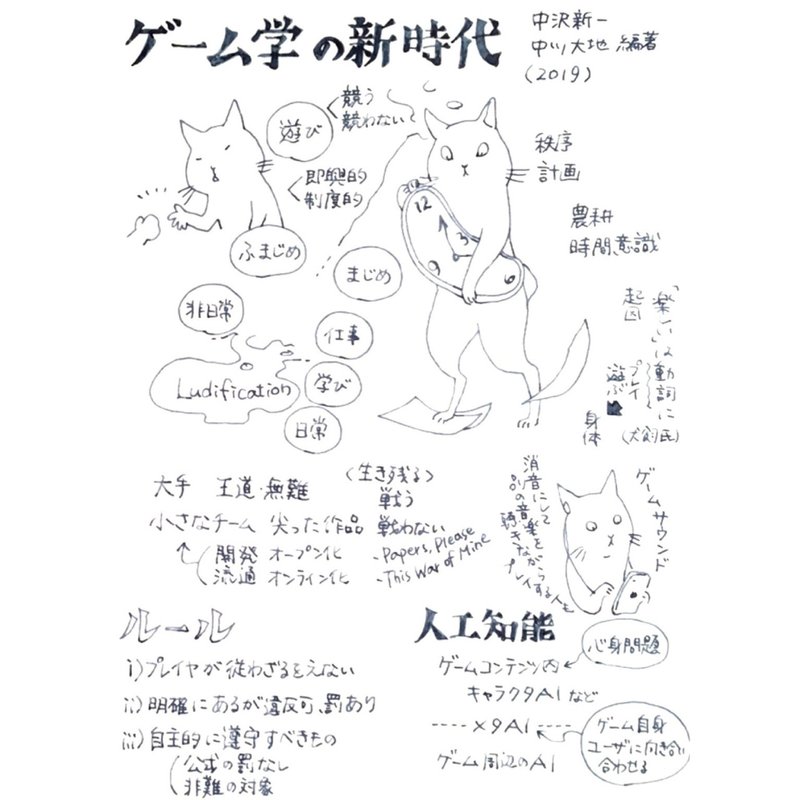 ゲーム学の新時代
中沢新一
中川大地 編著
(2019)
遊び
競う
競わない
即興的
制度的
ふまじめ
秩序
計画
農耕
時間、意識
12
3
6
9
まじめ
非日常
仕事
Ludification
学び
日常
「楽しい」は動詞に
起因
プレイ
遊ぶ
身体
(犬飼氏)
大手 王道・無難
小さなチーム 尖った作品
開発 オープン化
流通 オンライン化
〈生き残る〉
戦う
戦わない
-Papers, Please
-This War of Mine
ゲームサウンド
消音にして
別の音楽を
聴きながら
プレイする人も
ルール
i)プレイヤが従わざるをえない
ii)明確にあるが違反可、罰あり
iii)自主的に遵守すべきもの
公式の罰なし
非難の対象
人工知能
心身問題
ゲームコンテンツ内
キャラクタAIなど
---- メタAI ----
ゲーム周辺のAI
ゲーム自身
ユーザに向き合い
合わせる